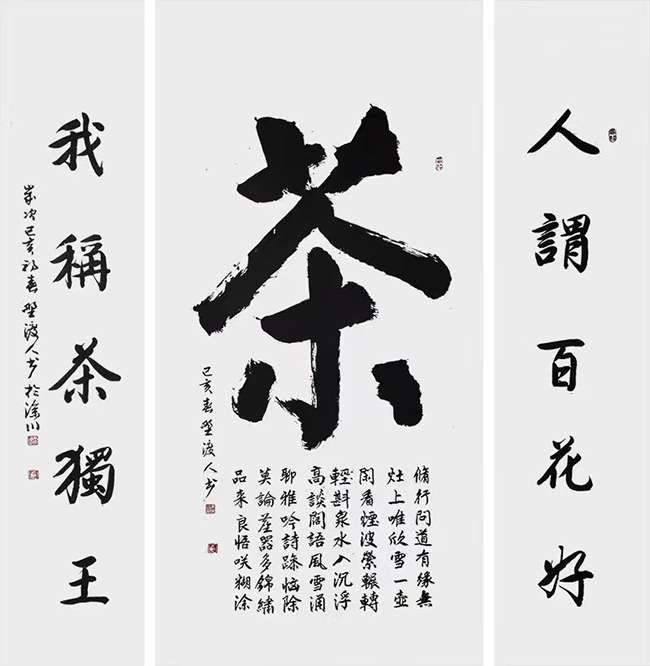 人謂百花好
茶
脩行問道有緣無
灶上唯欣雪一壺
閑看煙波縈輾轉
輕斟泉水入沉浮
高談闊語風雪涌
聊雅吟詩惱除
莫論器多錦繡
品来良悟咲糊涂
己亥春埜渡人书
我稱茶獨王
歲次己亥初春埜渡人书於涂川